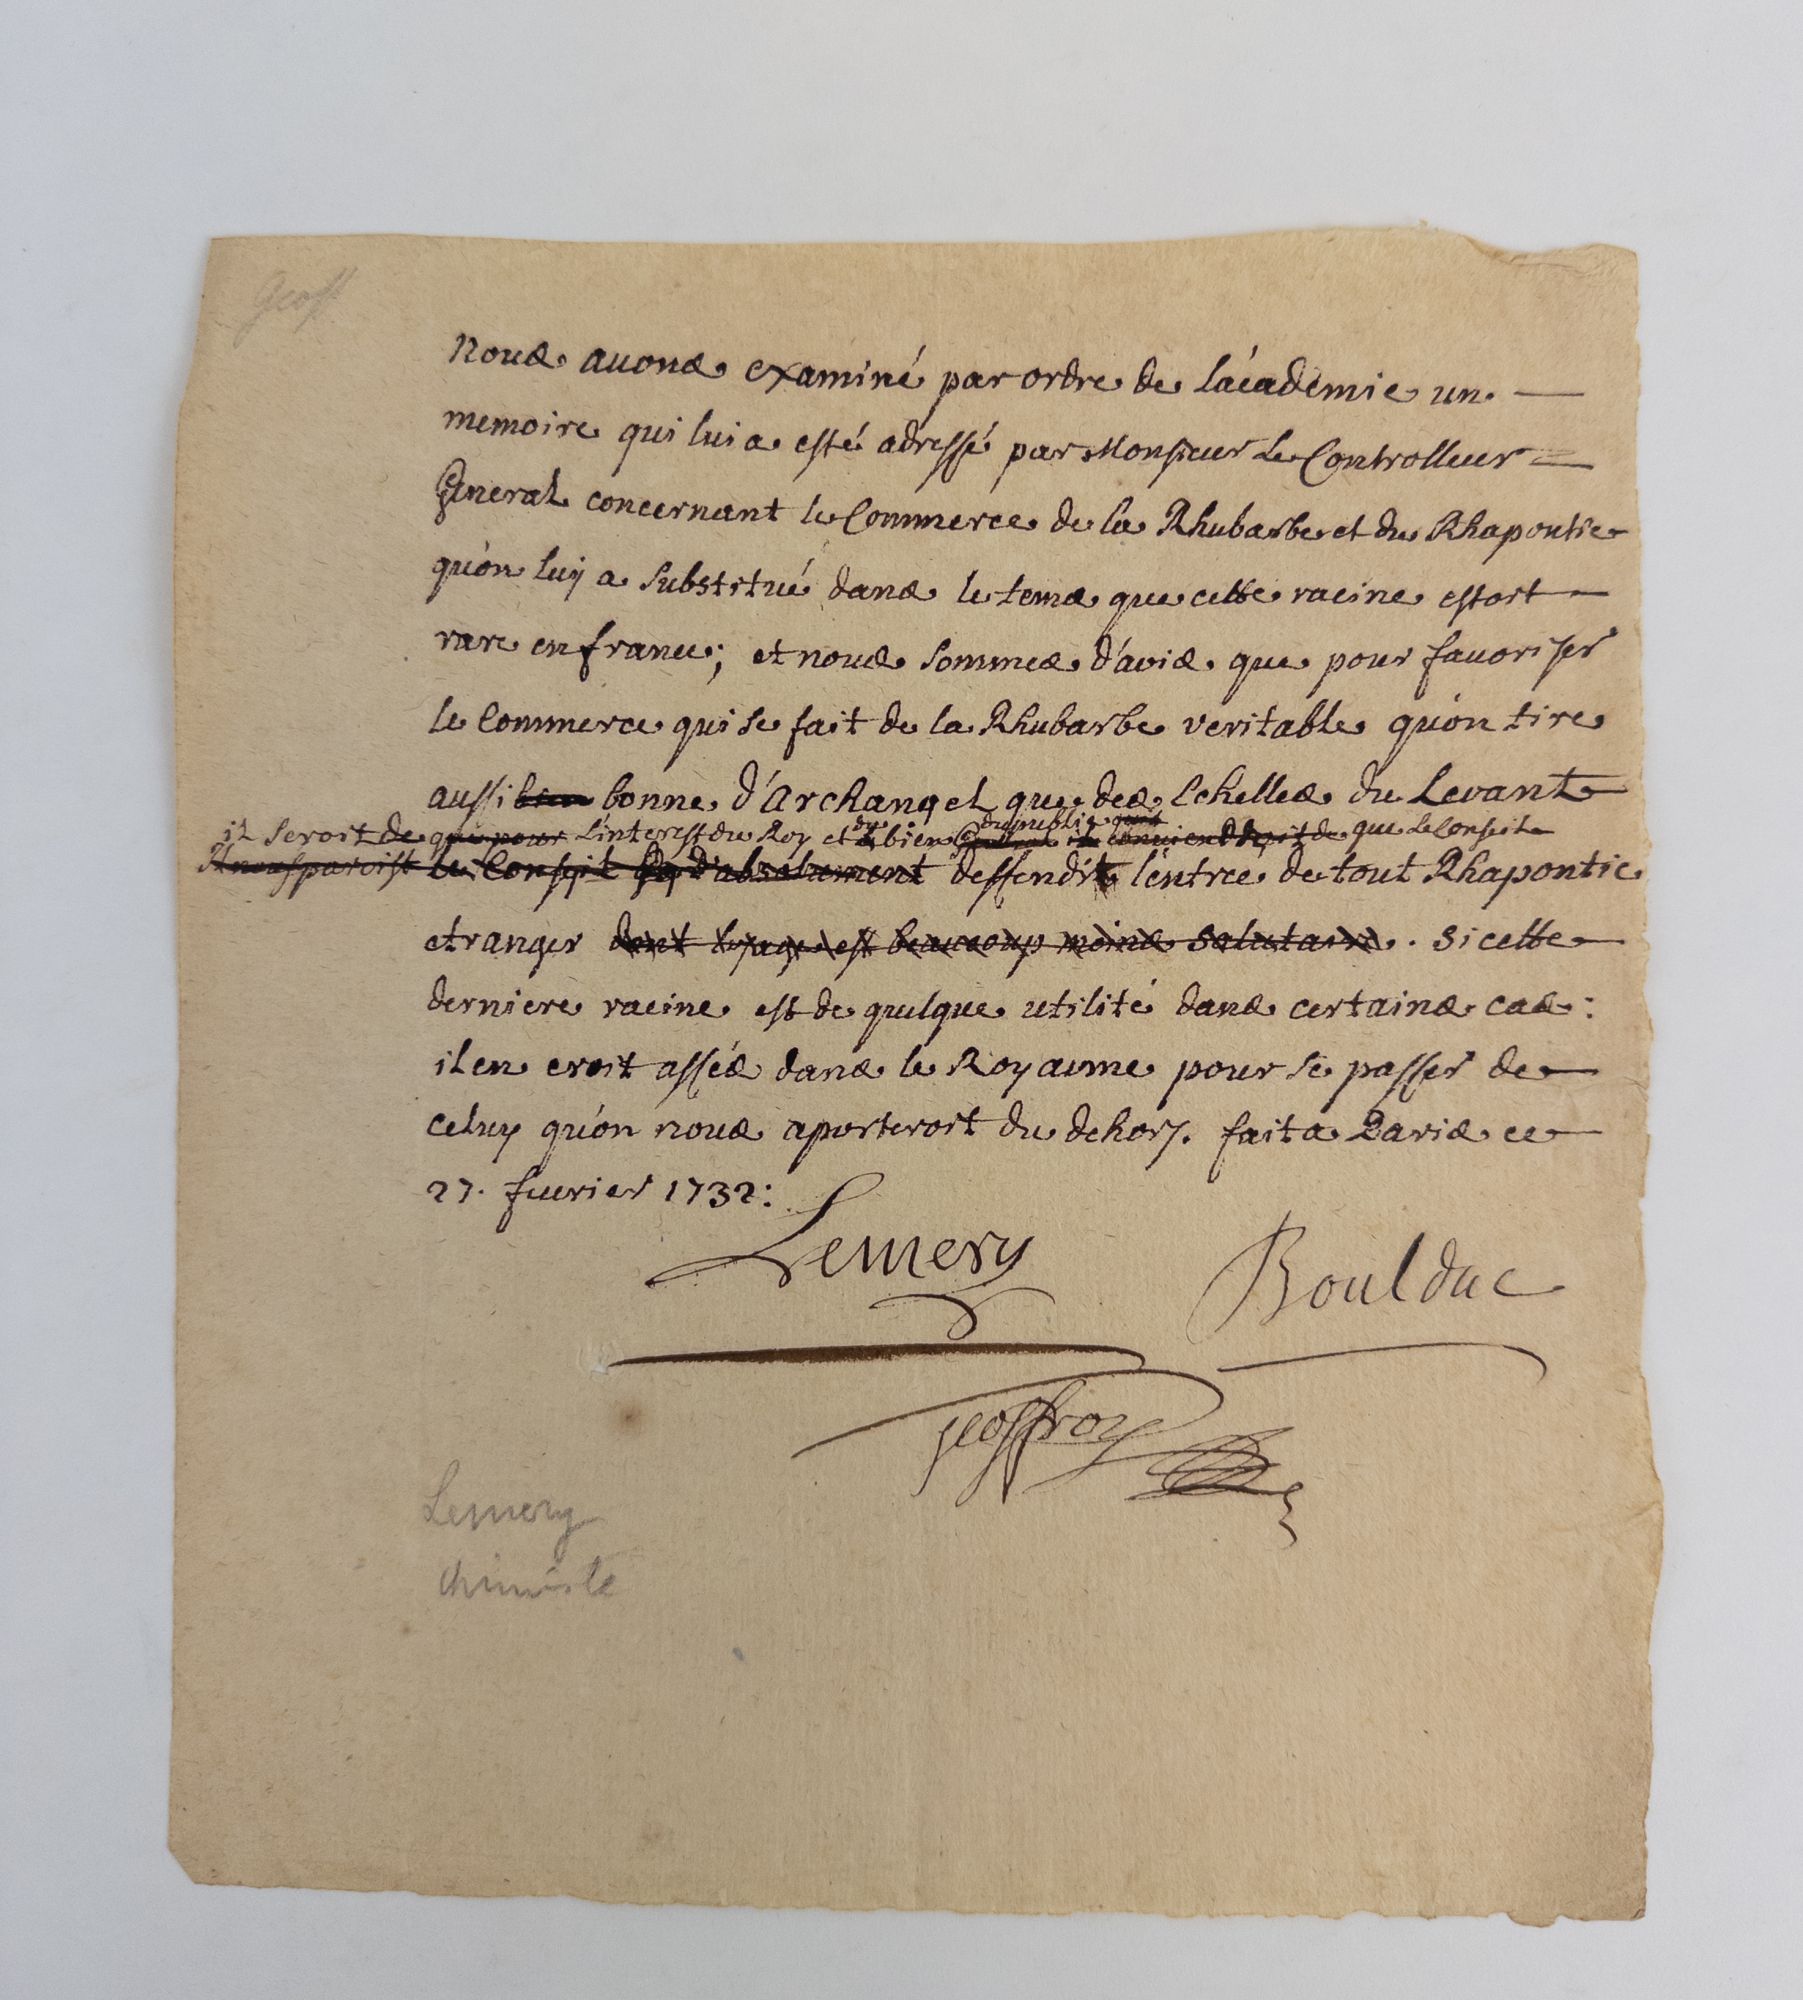 Geoff
Nous auons examiné par ordre de l'académie un
memoire qui lui a esté adressé par Monsieur Le Controlleur
General concernant le Commerce de la Rhubarbe et du Rhapontic
qu'on luy a substitué dans le tems que cette racine estoit
rare en france; et nous sommes d'avis que pour fauoriser
le Commerce qui se fait de la Rhubarbe veritable qu'on tire
aussi bien bonne d'Archangel que des Echelles du Levant
du public
il seroit de que pour L'interest du Roy et du bien il convient de que le Conseil
Il nous paroist le Conseil d'absolument deffendit l'entrée de tout Rhapontic
etranger dont l'usage est beaucoup moins salutaire. si cette
derniere racine est de quelque utilité dans certains cas:
il en croit assés dans le Royaume pour se passer de
celuy qu'on nous aporteroit du dehors. fait a Paris ce
27. feurier 1732:
Lemery
Boulduc
geoffroy
Lemery
chimiste